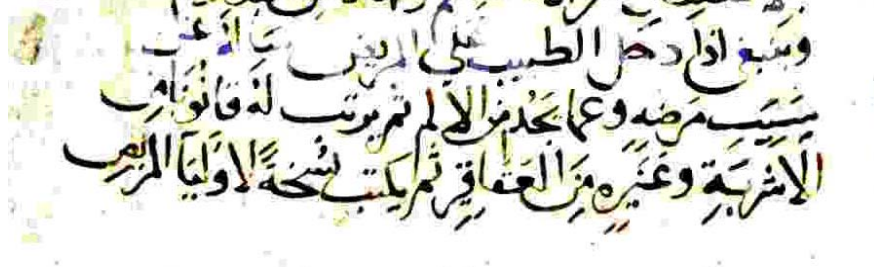 وينبغي اذا دخل الطبيب على المريض سأله عن
سبب مرضه وعما يجد من الالم ثم يرتب له قانونا من
الاشربة وغيره من العقاقير ثم يكتب نسخة لاولياء المريض